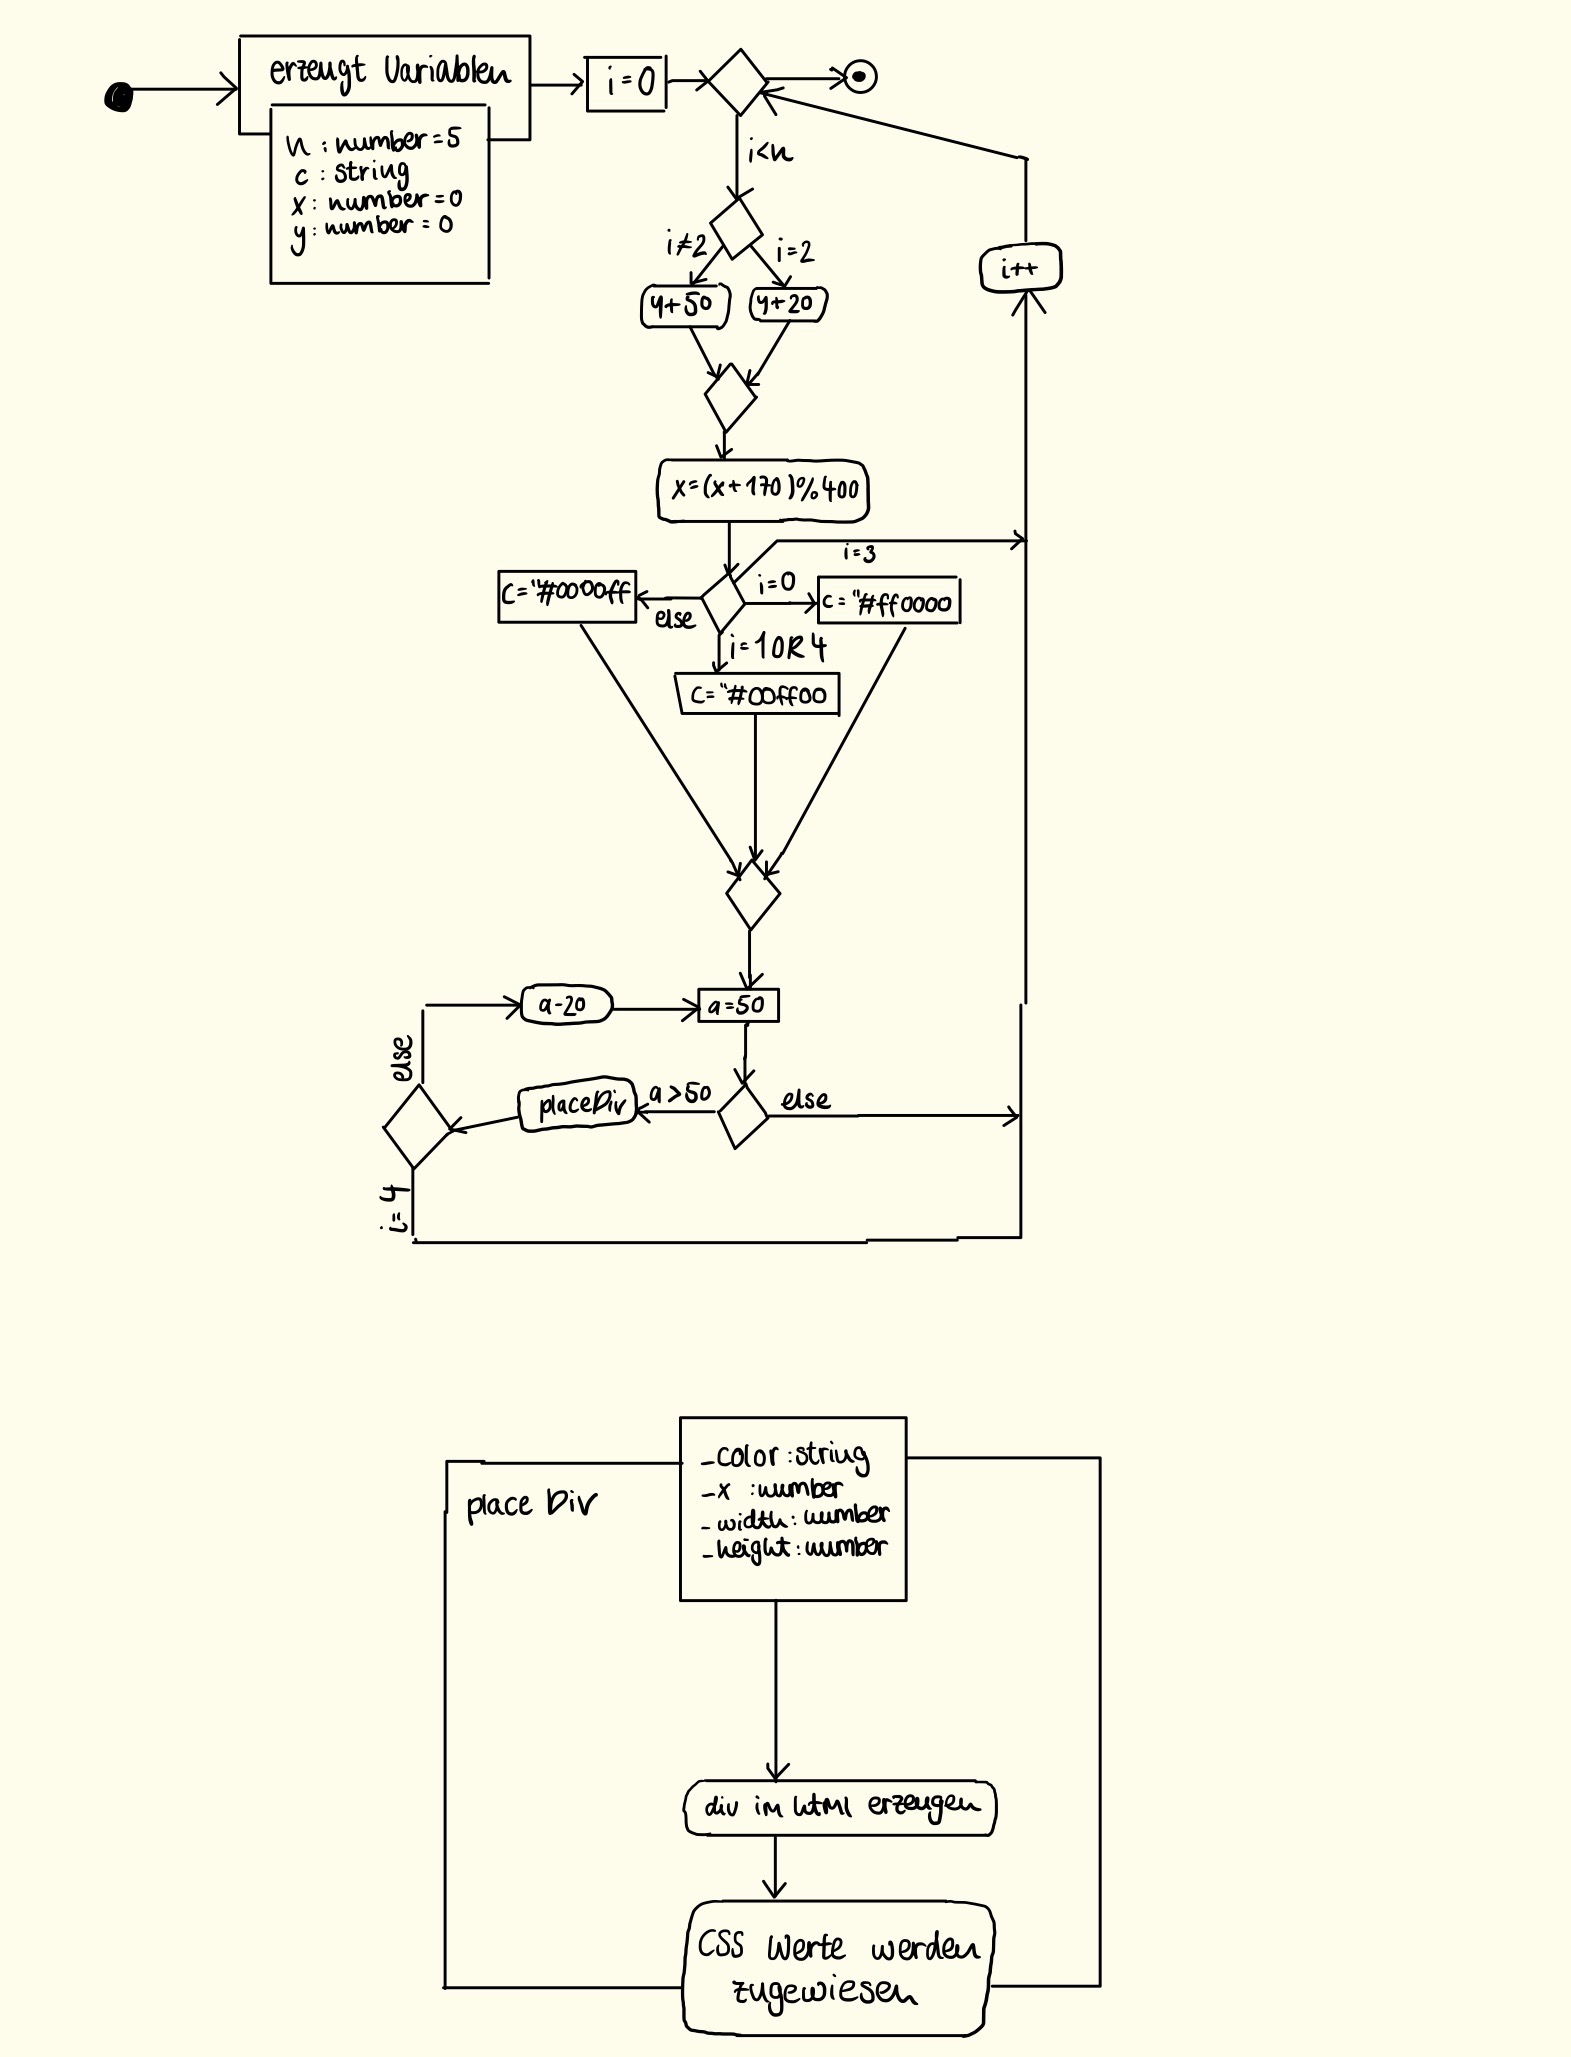 erzeugt Variablen
n : number = 5
c : string
x : number = 0
y : number = 0
i = 0
i<n
i≠2
i=2
y+50
y+20
x=(x+170)%400
i=3
c="#0000ff
i=0
c="#ff0000
else
i=1 OR 4
c="#00ff00
a-20
a=50
else
placeDiv
a>50
else
i=4
i++
place Div
-color : string
-x : number
-width : number
-height : number
div im html erzeugen
CSS Werte werden
zugewiesen